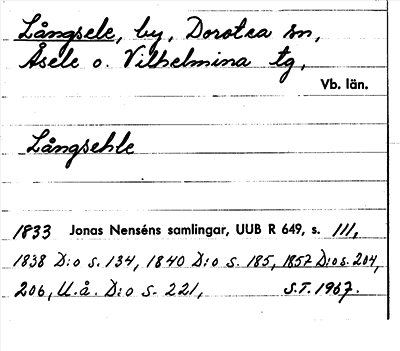 Långsele, by, Dorotea sn,
Åsele o. Vilhelmina tg,
Vb. län.
Långsehle
1833 Jonas Nenséns samlingar, UUB R 649, s. 111,
1838 D:o s. 134, 1840 D:o s. 185, 1857 D:o s. 204,
206, U.å. D:o s. 221, S.T. 1967.